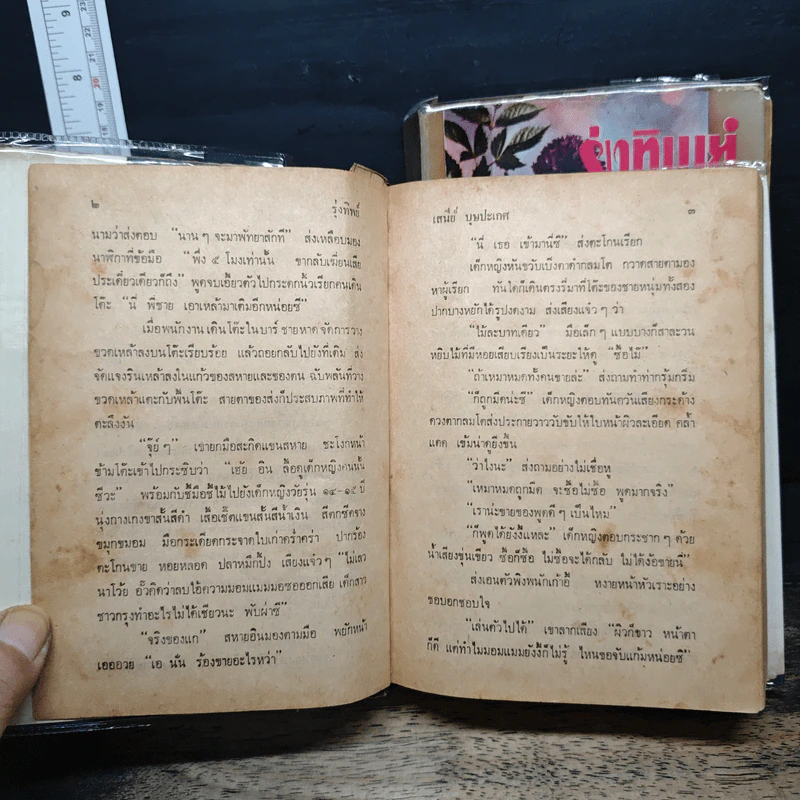 9
8
23
22
21
20
19
18
รุ่งทิพย์
๒ รุ่งทิพย์
นามว่าส่งตอบ “นาน ๆ จะมาพัทยาสักที” ส่งเหลือบมอง
นาฬิกาที่ข้อมือ “พึ่ง ๕ โมงเท่านั้น ขากลับเฆี่ยนเสีย
ประเดี๋ยวเดียวก็ถึง” พูดจบเอี้ยวตัวไปกระดกนิ้วเรียกคนเดิน
โต๊ะ “นี่ พี่ชาย เอาเหล้ามาเติมอีกหน่อยซี”
เมื่อพนักงานเดินโต๊ะในบาร์ชายหาดจัดการวาง
ขวดเหล้าลงบนโต๊ะเรียบร้อย แล้วถอยกลับไปยังที่เดิม ส่ง
จัดแจงรินเหล้าลงในแก้วของสหายและของตน ฉับพลันที่วาง
ขวดเหล้าแตะกับพื้นโต๊ะ สายตาของส่งก็ประสบภาพที่ทำให้
ตะลึงงัน
“จุ๊ย์ ๆ” เขายกมือสะกิดแขนสหาย ชะโงกหน้า
ข้ามโต๊ะเข้าไปกระซิบว่า “เฮ้ย อิน ลื้อดูเด็กหญิงคนนั้น
ซีวะ” พร้อมกับชี้มือชี้ไม้ไปยังเด็กหญิงวัยรุ่น ๑๔-๑๕ ปี
นุ่งกางเกงขาสั้นสีดำ เสื้อเชิ้ตแขนสั้นสีน้ำเงิน สีตกซีดจาง
ขมุกขมอม มือกระเดียดกระจาดใบเก่าคร่ำคร่า ปากร้อง
ตะโกนขาย หอยหลอด ปลาหมึกปิ้ง เสียงแจ๋ว ๆ “ไม่เลว
นาโว้ย อั๊วคิดว่าลบไอ้ความมอมแมมมอซอออกเสีย เด็กสาว
ชาวกรุงทำอะไรไม่ได้เชียวนะ พับผ่าซี”
“จริงของแก” สหายอินมองตามมือ พยักหน้า
เออออวย “เอ นั่น ร้องขายอะไรหว่า”
เสนีย์ บุษปะเกศ ๓
“นี่ เธอ เข้ามานี่ซี” ส่งตะโกนเรียก
เด็กหญิงหันขวับเบิ่งตาดำกลมโต กวาดสายตามอง
หาผู้เรียก ทันใดก็เดินตรงรี่มาที่โต๊ะของชายหนุ่มทั้งสอง
ปากบางหยักได้รูปงดงาม ส่งเสียงแจ๋ว ๆ ว่า
“ไม้ละบาทเดียว” มือเล็ก ๆ แบบบางก็สาละวน
หยิบไม้ที่มีหอยเสียบเรียงเป็นระยะให้ดู “ซื้อไม้”
“ถ้าเหมาหมดทั้งคนขายล่ะ” ส่งถามทำท่ากรุ้มกริ่ม
“ก็ถูกมีดน่ะซี” เด็กหญิงตอบทันควันเสียงกระด้าง
ดวงตากลมโตส่งประกายวาววับขับให้ใบหน้าผิวละเอียด คล้ำ
แดด เข้มน่าดูยิ่งขึ้น
“ว่าไงนะ” ส่งถามอย่างไม่เชื่อหู
“เหมาหมดถูกมีด จะซื้อไม่ซื้อ พูดมากจริง”
“เรานะขายของพูดดี ๆ เป็นไหม”
“ก็พูดได้ยังงี้แหละ” เด็กหญิงตอบกระชาก ๆ ด้วย
น้ำเสียงขุ่นเขียว ซื้อก็ซื้อ ไม่ซื้อจะได้กลับ ไม่ได้ง้อขายนี่”
ส่งเอนตัวพิงพนักเก้าอี้ หงายหน้าหัวเราะอย่าง
ชอบอกชอบใจ
“เล่นตัวไปได้” เขาลากเสียง “ผิวก็ขาว หน้าตา
ก็ดี แต่ทำไมมอมแมมยังงี้ก็ไม่รู้ ไหนขอจับแก้มหน่อยซิ”